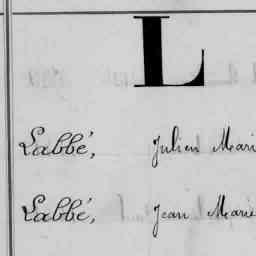 L
Labbé, Julien Mari
Labbé, Jean Marie